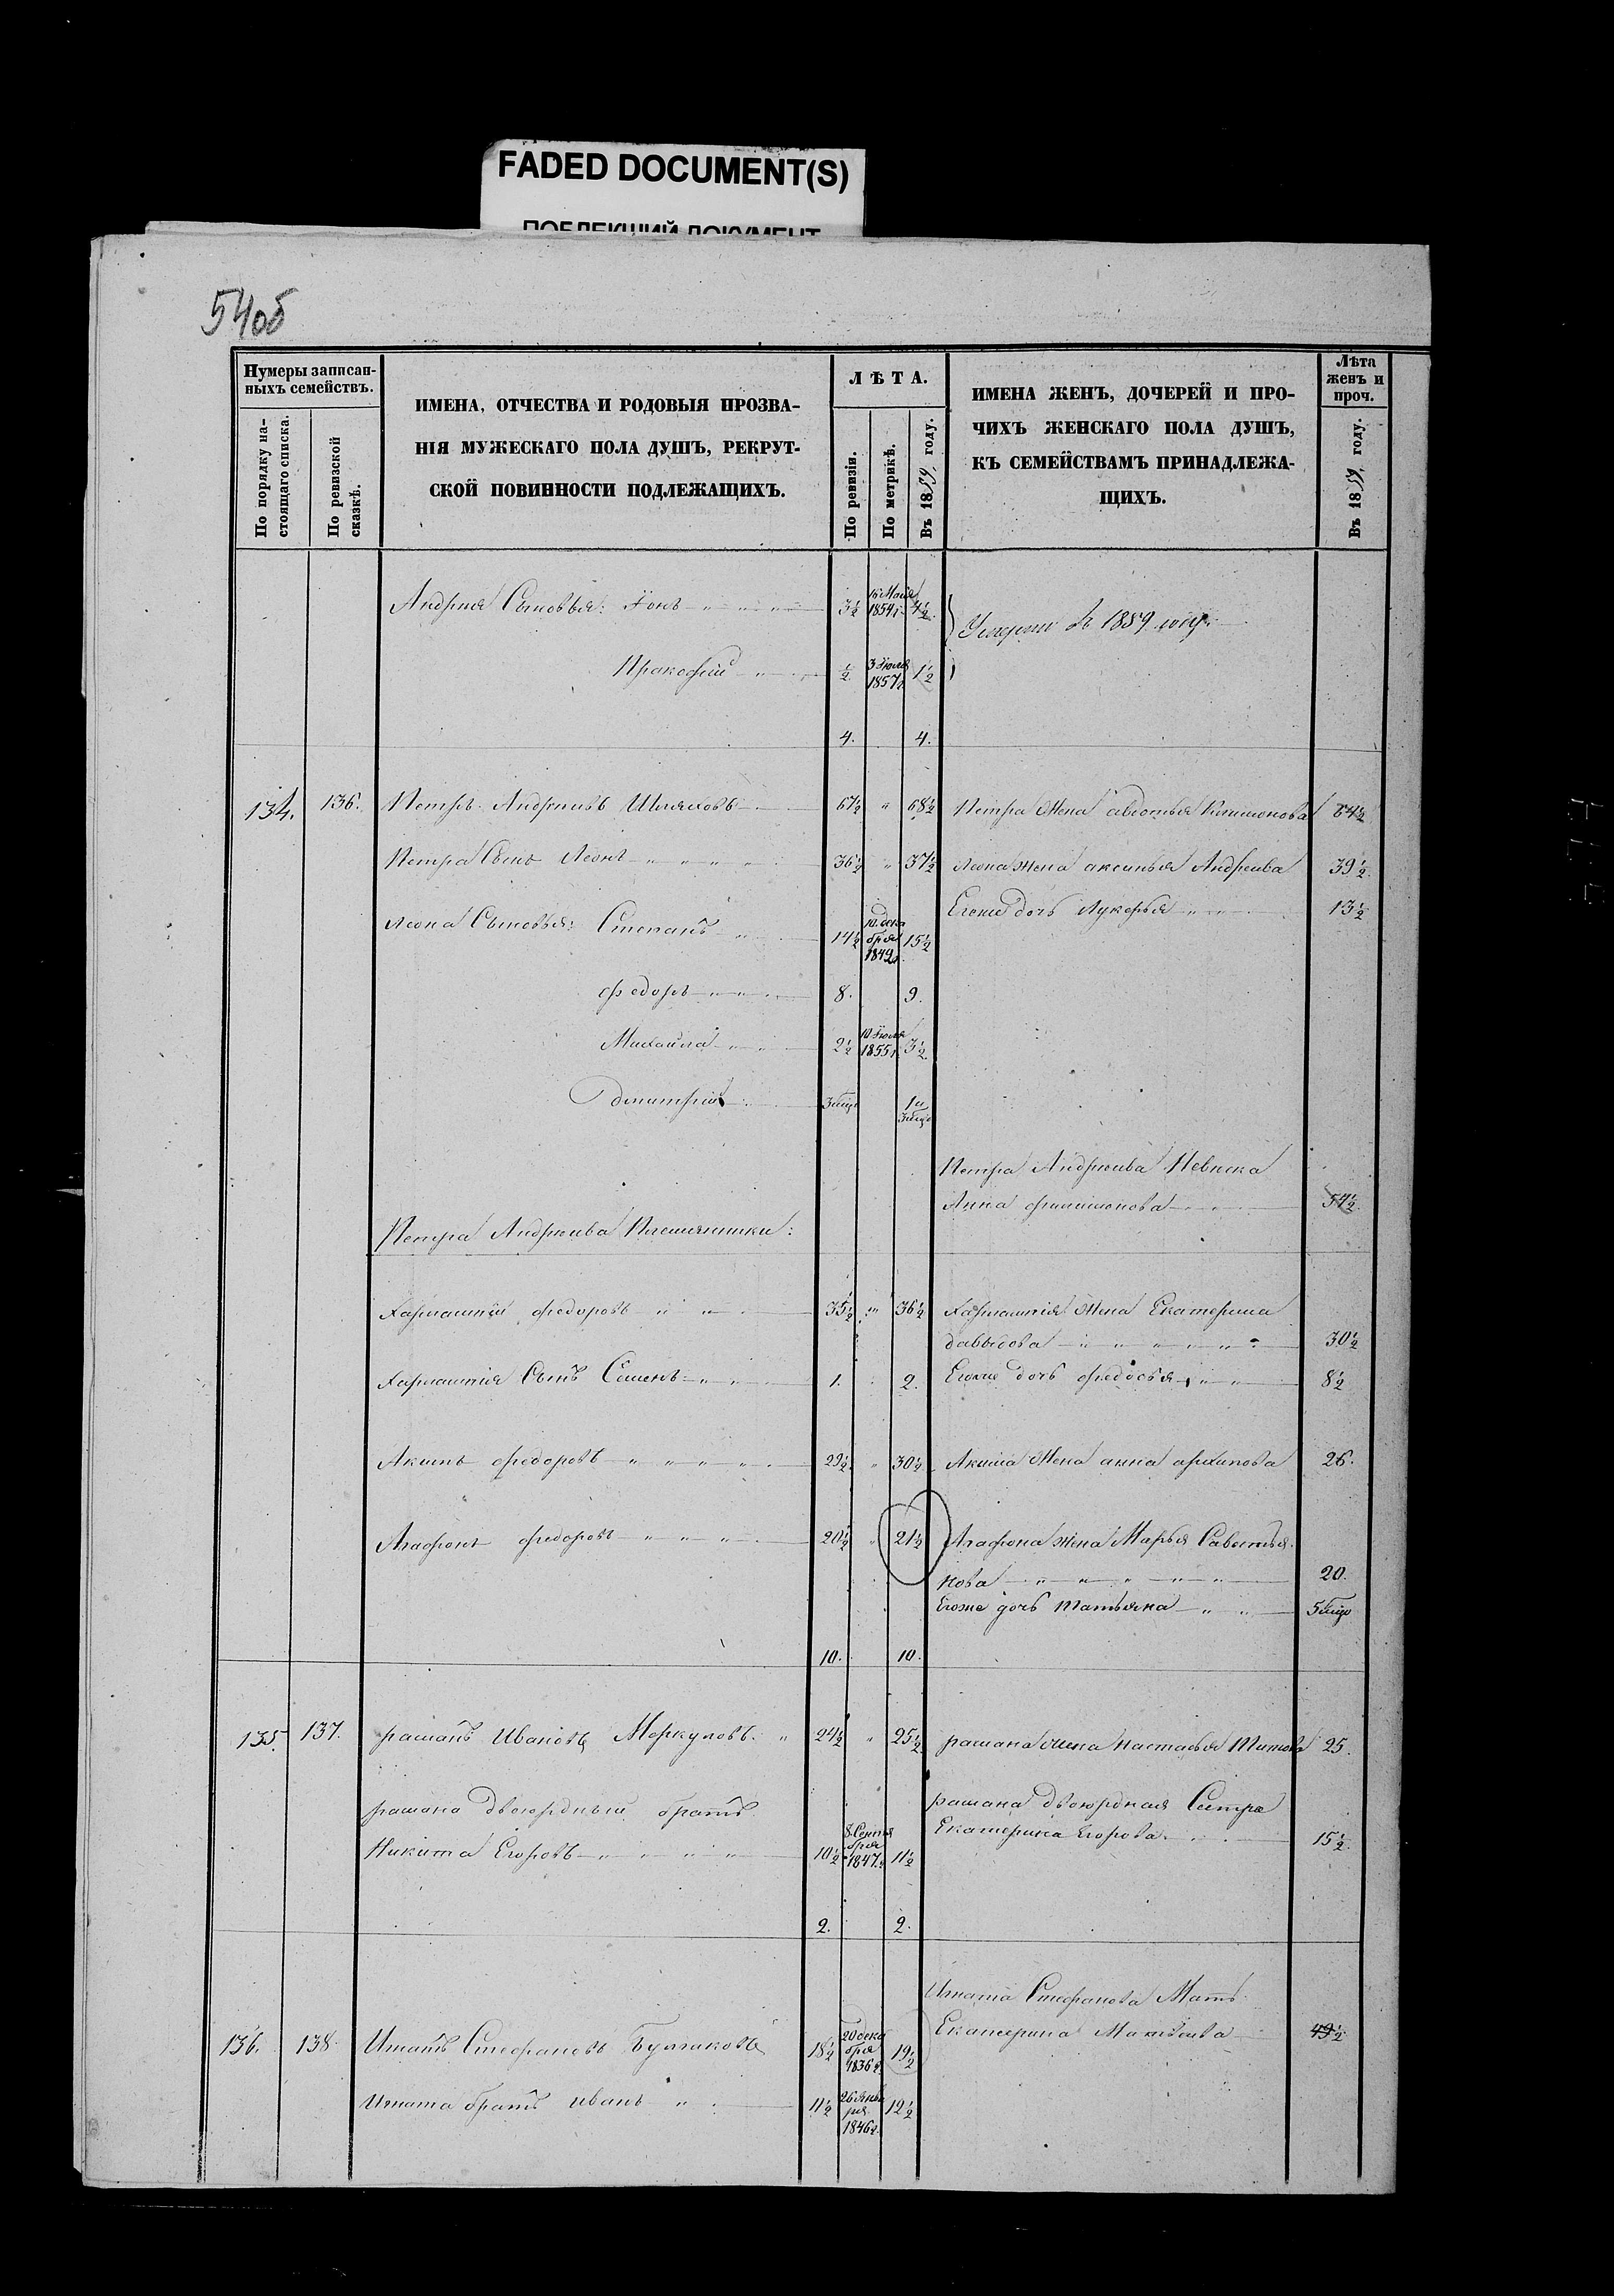 FADED DOCUMENT(S)
ПОБЛЕКШИЙ ДОКУМЕНТ
54об
Нумеры записан-
ныхъ семействъ.
По порядку на-
стоящаго списка.
По ревизской
сказкѣ.
ИМЕНА, ОТЧЕСТВА И РОДОВЫЯ ПРОЗВА-
НІЯ МУЖЕСКАГО ПОЛА ДУШЪ, РЕКРУТ-
СКОЙ ПОВИННОСТИ ПОДЛЕЖАЩИХЪ.
ЛѢТА.
По ревизіи.
По метрикѣ.
Въ 1859 году.
ИМЕНА ЖЕНЪ, ДОЧЕРЕЙ И ПРО-
ЧИХЪ ЖЕНСКАГО ПОЛА ДУШЪ,
КЪ СЕМЕЙСТВАМЪ ПРИНАДЛЕЖА-
ЩИХЪ.
Лѣта
женъ и
проч.
Въ 1859 году.
Андрея Сыновья: 3½ Мая 1854 г. 4½
1859 году
Прокофій ½ 3 Іюля 1857 г. 1½
4. 4.
134. 136. Петръ Андреивъ 67½ " 68½ Петра Жена авдотья 64½
Петра Сынъ Леонъ 36½ " 37½ Леона жена аксинья Андреива 39½
Егоже дочь Лукерья 13½
Леона Сыновья: Степанъ 14½ 10 декабря 1849 г. 15½
федоръ 8. 9.
Михайла 2½ 10 Іюля 1855 г. 3½
дмитрій 3 мѣц 1 и 3 мѣц
Петра Андреива Невѣска
Анна филимонова 54½
Петра Андреива Племянники:
федоровъ 35½ " 36½ Жена Екатерина
давыдова 30½
Сынъ Семенъ 1. 2. Егоже дочь федосья 8½
Акимъ федоровъ 29½ " 30½ Акима Жена анна архипова 26.
Агафонъ федоровъ 20½ " 21½ Агафона жена Марья Савостья-
нова 20.
Егоже дочь Татьяна 5 мѣц
10. 10.
135. 137. рашанъ Ивановъ Меркуловъ 24½ " 25½ рашана жена настасья Титова 25.
рашана двоюрдный братъ рашана двоюрдная Сестра
Екатерина Егорова 15½
Никита Егоровъ 10½ 8 Сентября 1847 г. 11½
2. 2.
Игната Стефанова Мать
Екатерина Матвѣива 49½
136. 138. Игнатъ Стефановъ Булгаковъ 18½ 20 декабря 1836 г. 19½
Игната братъ иванъ 11½ 26 января 1846 г. 12½